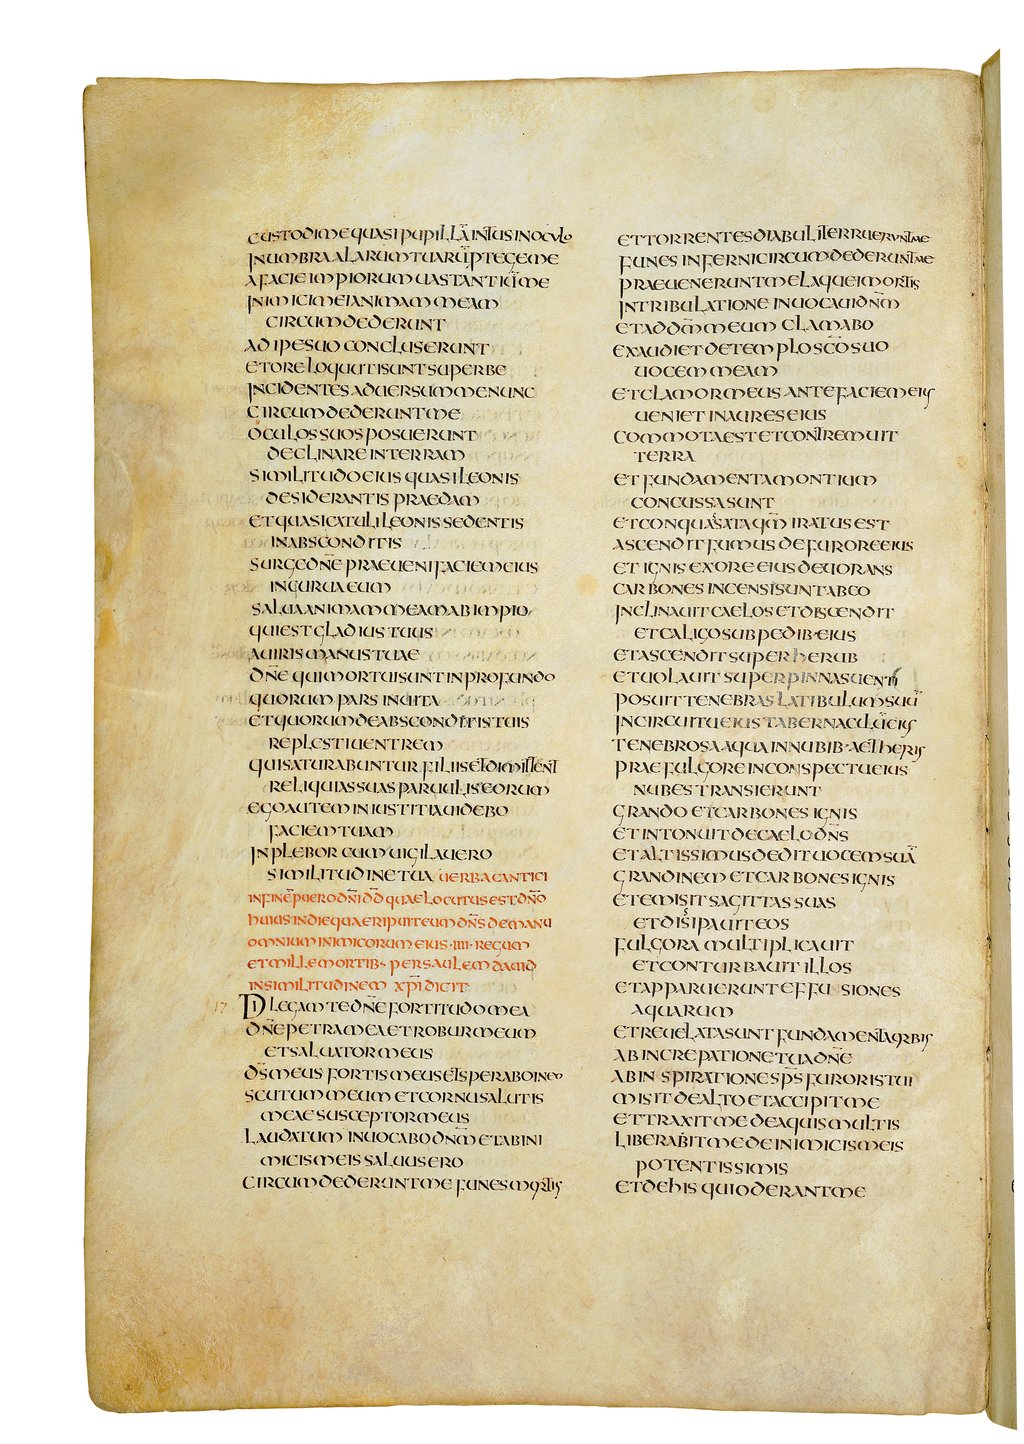 CUSTODI ME QUASI PUPILLĀ INTUS IN OCULO
IN UMBRA ALARUM TUARŪ PTEGE ME
A FACIE IMPIORUM UASTANTIŪ ME
INIMICI MEI ANIMAM MEAM
CIRCUMDEDERUNT
ADIPE SUO CONCLUSERUNT
ET ORE LOQUUTI SUNT SUPERBE
INCIDENTES ADUERSUM ME NUNC
CIRCUMDEDERUNT ME
OCULOS SUOS POSUERUNT
DECLINARE IN TERRAM
SIMILITUDO EIUS QUASI LEONIS
DESIDERANTIS PRAEDAM
ET QUASI CATULI LEONIS SEDENTIS
IN ABSCONDITIS
SURGE DN̄E PRAEUENI FACIEM EIUS
INCURUA EUM
SALUA ANIMAM MEAM AB IMPIO
QUI EST GLADIUS TUUS
A UIRIS MANUS TUAE
DN̄E QUI MORTUI SUNT IN PROFUNDO
QUORUM PARS IN UITA
ET QUORUM DE ABSCONDITIS TUIS
REPLESTI UENTREM
QUI SATURABUNTUR FILIIS ET DIMITTENT
RELIQUIAS SUAS PARUULIS EORUM
EGO AUTEM IN IUSTITIA UIDEBO
FACIEM TUAM
INPLEBOR CUM UIGILAUERO
SIMILITUDINE TUA UERBA CANTICI
IN FINĒ PUERO DN̄I DD̄ QUAE LOCUTUS EST DN̄O
HUIUS IN DIE QUA ERIPUIT EUM DN̄S DE MANU
OMNIUM INIMICORUM EIUS · IIII · REGUM
ET MILLE MORTIB· PER SAULEM DAUID
IN SIMILITUDINEM XP̄I DICIT
17 DILEGAM TE DN̄E FORTITUDO MEA
DN̄E PETRA MEA ET ROBUR MEUM
ET SALUATOR MEUS
DS̄ MEUS FORTIS MEUS ET SPERABO IN EO
SCUTUM MEUM ET CORNU SALUTIS
MEAE SUSCEPTOR MEUS
LAUDATUM INUOCABO DN̄M ET AB INI
MICIS MEIS SALUUS ERO
CIRCUMDEDERUNT ME FUNES MORTIS
ET TORRENTES DIABULI TERRUERUNT ME
FUNES INFERNI CIRCUMDEDERUNT ME
PRAEUENERUNT ME LAQUEI MORTIS
IN TRIBULATIONE INUOCAUI DN̄M
ET AD DM̄ MEUM CLAMABO
EXAUDIET DE TEMPLO SCŌ SUO
UOCEM MEAM
ET CLAMOR MEUS ANTE FACIEM EIUS
UENIET IN AURES EIUS
COMMOTA EST ET CONTREMUIT
TERRA
ET FUNDAMENTA MONTIUM
CONCUSSA SUNT
ET CONQUASSATA QM̄ IRATUS EST
ASCENDIT FUMUS DE FURORE EIUS
ET IGNIS EX ORE EIUS DEUORANS
CARBONES INCENSI SUNT AB EO
INCLINAUIT CAELOS ET DISCENDIT
ET CALIGO SUB PEDIB· EIUS
ET ASCENDIT SUPER HERUB
ET UOLAUIT SUPER PINNAS UENTI
POSUIT TENEBRAS LATIBULUM SUŪ
IN CIRCUITU EIUS TABERNACULŪ EIUS
TENEBROSA AQUA IN NUBIB· AETHERIS
PRAE FULGORE IN CONSPECTU EIUS
NUBES TRANSIERUNT
GRANDO ET CARBONES IGNIS
ET INTONUIT DE CAELO DN̄S
ET ALTISSIMUS DEDIT UOCEM SUĀ
GRANDINEM ET CARBONES IGNIS
ET EMISIT SAGITTAS SUAS
ET DISSIPAUIT EOS
FULGORA MULTIPLICAUIT
ET CONTURBAUIT ILLOS
ET APPARUERUNT EFFUSIONES
AQUARUM
ET REUELATA SUNT FUNDAMENTA ORBIS
AB INCREPATIONE TUA DN̄E
AB INSPIRATIONE SPS̄ FURORIS TUI
MISIT DE ALTO ET ACCIPIT ME
ET TRAXIT ME DE AQUIS MULTIS
LIBERABIT ME DE INIMICIS MEIS
POTENTISSIMIS
ET DE HIS QUI ODERANT ME